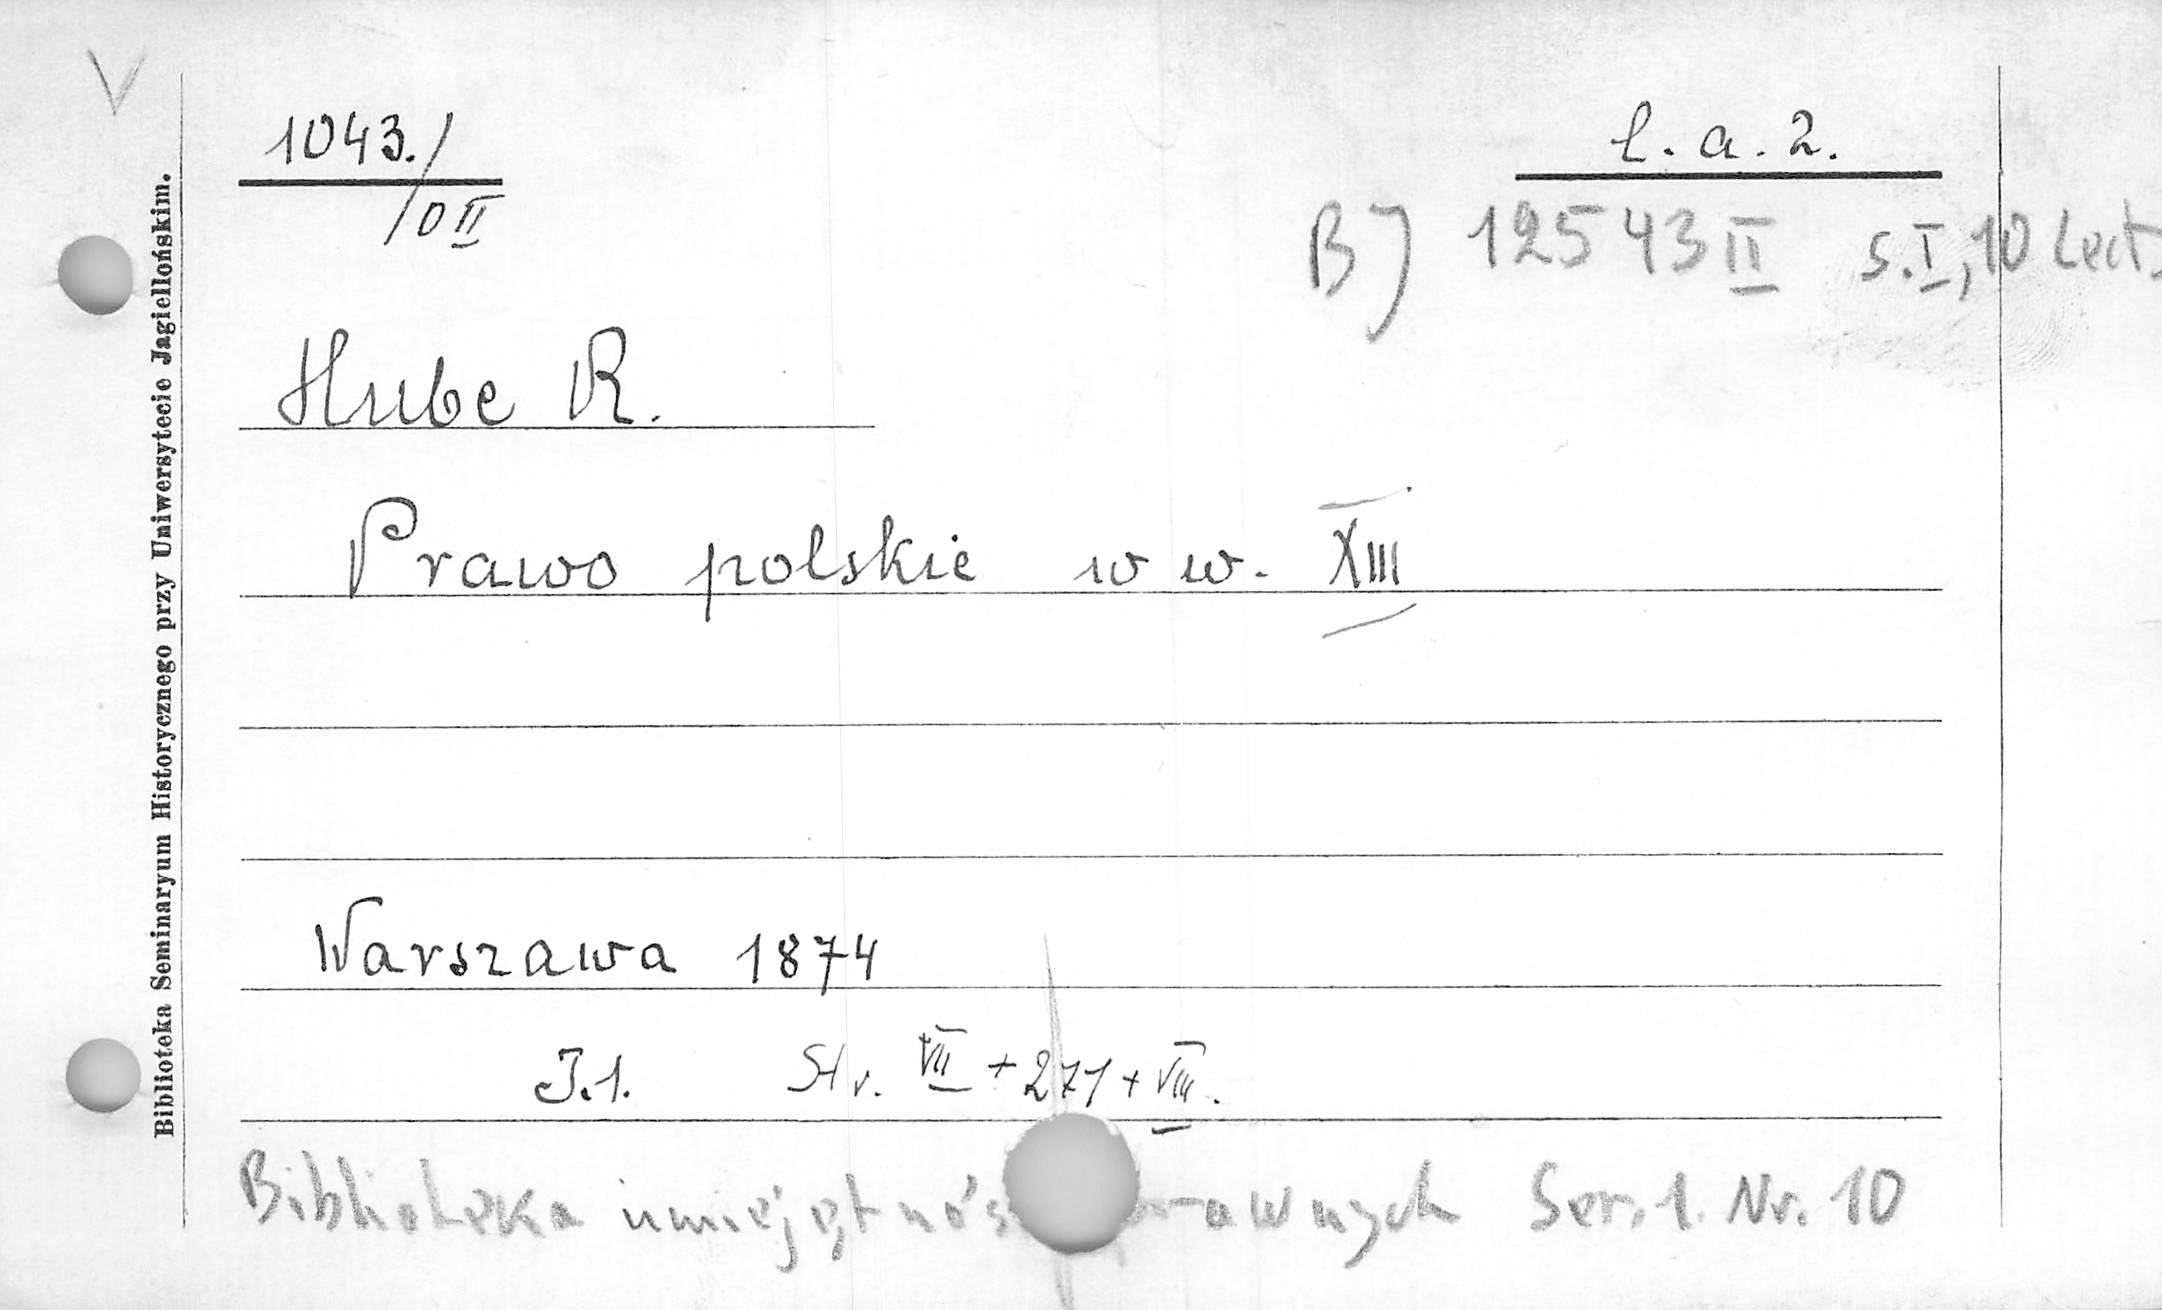 V
1043./
/0 II
l. a. 2.
B) 12543 II s. I, 10 Lect
Hube R.
Prawo polskie w w. XIII
Warszawa 1874
T. 1. Str. VII + 271 + VIII.
Biblioteka umiejętnoś rawnych Ser. 1. Nr. 10
Biblioteka Seminaryum Historycznego przy Uniwersytecie Jagiellońskim.